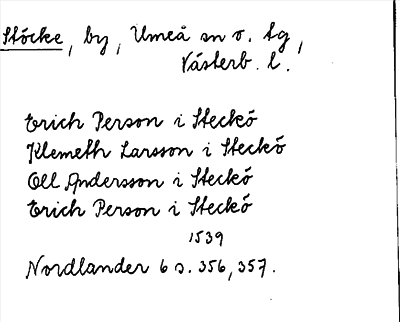 Stöcke, by, Umeå sn o. tg,
Västerb. l.
Erich Person i Steckó
Klemeth Larsson i Steckó
Oll Andersson i Steckó
Erich Person i Steckó
1539
Nordlander 6 s. 356, 357.